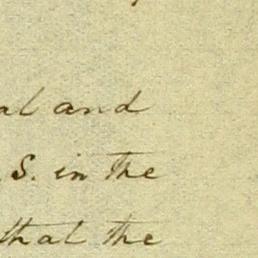 al and
S. in the
that the